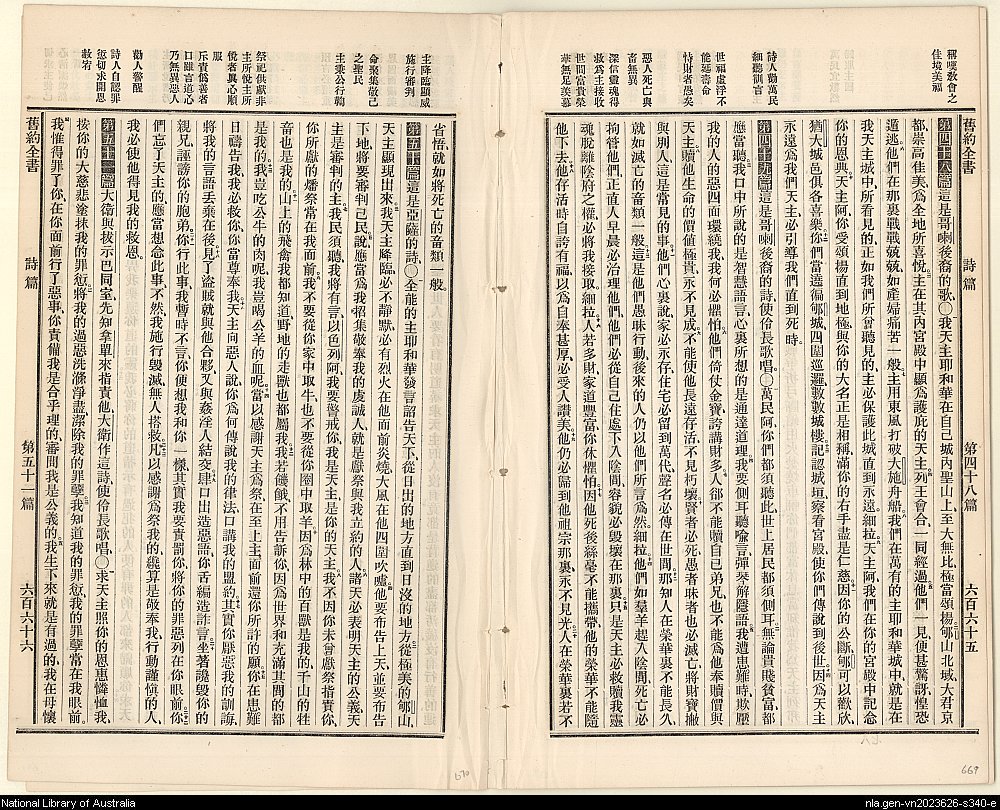 舊約全書
詩篇
第四十八篇
六百六十五
稱嘆敎會之
佳境美福
詩人勸萬民
細聽訓言
世福虛浮不
能延壽命
恃財者愚矣
惡人死亡與
畜無異
深信靈魂得
救爲主接收
世間富貴榮
華無足羨慕
第四十八篇 這是哥喇後裔的歌、〇我天主耶和華在自己城內聖山上至大無比極當頌揚郇山北城大君京
都、崇高佳美、爲全地所喜悅、主在其內宮殿中顯爲護庇的天主、列王會合、一同經過他們一見、便甚驚訝、惶恐
遁逃、他們在那裏戰戰兢兢、如產婦痛苦一般、主用東風打破大施舟船、我們在萬有的主耶和華城中、就是在
我天主城中所看見的、正如我們所曾聽見的、主必保護此城直到永遠、細拉、天主阿、我們在你的宮殿中記念
你的恩典、天主阿、你受頌揚直到地極、與你的大名正是相稱、滿你的右手盡是仁慈、因你的公斷、郇山可以歡欣
猶大城邑俱各喜樂、你們當遶徧郇城四圍巡邏、數數城樓、記認城垣、察看宮殿、使你們傳說到後世、因爲天主
永遠爲我們天主、必引導我們直到死時。
第四十九篇 這是哥喇後裔的詩、使伶長歌唱。〇萬民阿、你們都須聽此、世上居民都須側耳、無論貴賤貧富、都
應當聽、我口中所說的是智慧語言、心裏所想的是通達道理、我要側耳聽喻言、彈琴解隱語、我遭患難時、欺壓
我的人的惡四面環繞我、我何必懼怕、他們倚仗金寶、誇講財多、人卻不能贖自己弟兄、也不能爲他奉贖價與
天主、贖他生命的價值極貴、永不見成、不能使他長遠存活、不見朽壞、賢者必死、愚者昧者也必滅亡、將財寶撇
與別人、這是常見的事、他們心裏說、家必永存、住宅必留到萬代、聲名必傳在世間、那知人在榮華裏不能長久、
就如滅亡的畜類一般、這是他們愚昧行動、後來的人仍以他們所言爲然、細拉、他們如羣羊趕入陰間、死亡必
拘管他們、正直人早晨必治理他們、他們必從自己住處下入陰間、容貌必毀壞在那裏、只是天主必救贖我靈
魂、脫離陰府之權、必將我接取、細拉、人若多財家道豐富、你休懼怕、因他死後絲毫不能攜帶、他的榮華不能隨
他下去、他存活時自誇有福、以爲自奉甚厚、必受人讚美、他仍必歸到他祖宗那裏、永不見光、人在榮華裏若不
舊約全書
詩篇
第五十一篇
六百六十六
主降臨顯威
施行審判
命聚集敬己
之聖民
主秉公行鞫
祭祀供獻非
主所悅主所
悅者異心順
服
斥責僞善者
口雖言道心
乃無異惡人
勸人警醒
詩人自認罪
愆切求開恩
赦宥
省悟、就如將死亡的畜類一般、
第五十篇 這是亞薩的詩、〇全能的主耶和華發言、詔告天下、從日出的地方直到日沒的地方、從極美的郇山、
天主顯現出來、我天主降臨、必不靜默、必有烈火在他面前炎燒、大風在他四圍吹噓、他要布告上天、並要布告
下地、將要審判己民、說、應當爲我招集敬奉我的虔誠人、就是獻祭與我立約的人、諸天必表明天主的公義、天
主是審判的主、我民須聽、我將有言、以色列阿、我要警戒你、我是天主、是你的天主、我不因你未曾獻祭指責你、
你所獻的燔祭常在我面前、我不要從你家中取牛、也不要從你圈中取羊、因爲林中的百獸是我的、千山的牲
畜也是我的、山上的飛禽我都知道、野地的走獸也都屬我、我若饑餓、不用告訴你、因爲世界和充滿其間的都
是我的、我豈吃公牛的肉呢、我豈喝公羊的血呢、當以感謝天主爲祭、在至上主面前還你所許的願、你在患難
日禱告我、我必救你、你當尊奉我、天主向惡人說、你爲何傳說我的律法、口講我的盟約、其實你厭惡我的訓誨、
將我的言語丟棄在後、見了盜賊就與他合夥、又與姦淫人結交、肆口出造惡語、你舌編造詐言、坐著譭毀你的
親兄、誣謗你的胞弟、你行此事、我暫時不言、你便想我和你一樣、其實我要責罰你、將你的罪惡列在你眼前、你
們忘了天主的、應當想念此事、不然我施行毀滅、無人搭救、凡以感謝爲祭我的、纔算是敬奉我、行動謹愼的人、
我必使他得見我的救恩。
第五十一篇 大衛與拔示巴同室、先知拿單來指責他、大衛作這詩、使伶長歌唱、〇求天主照你的恩惠憐恤我、
按你的大慈悲塗抹我的罪愆、將我的過惡洗滌淨盡、潔除我的罪孽、我知道我的罪愆、我的罪孽常在我眼前、
我惟得罪了你、在你面前行了惡事、你責備我是合乎理的、審問我是公義的、我生下來就是有過的、我在母懷
670
669
National Library of Australia
nla.gen-vn2023626-s340-e